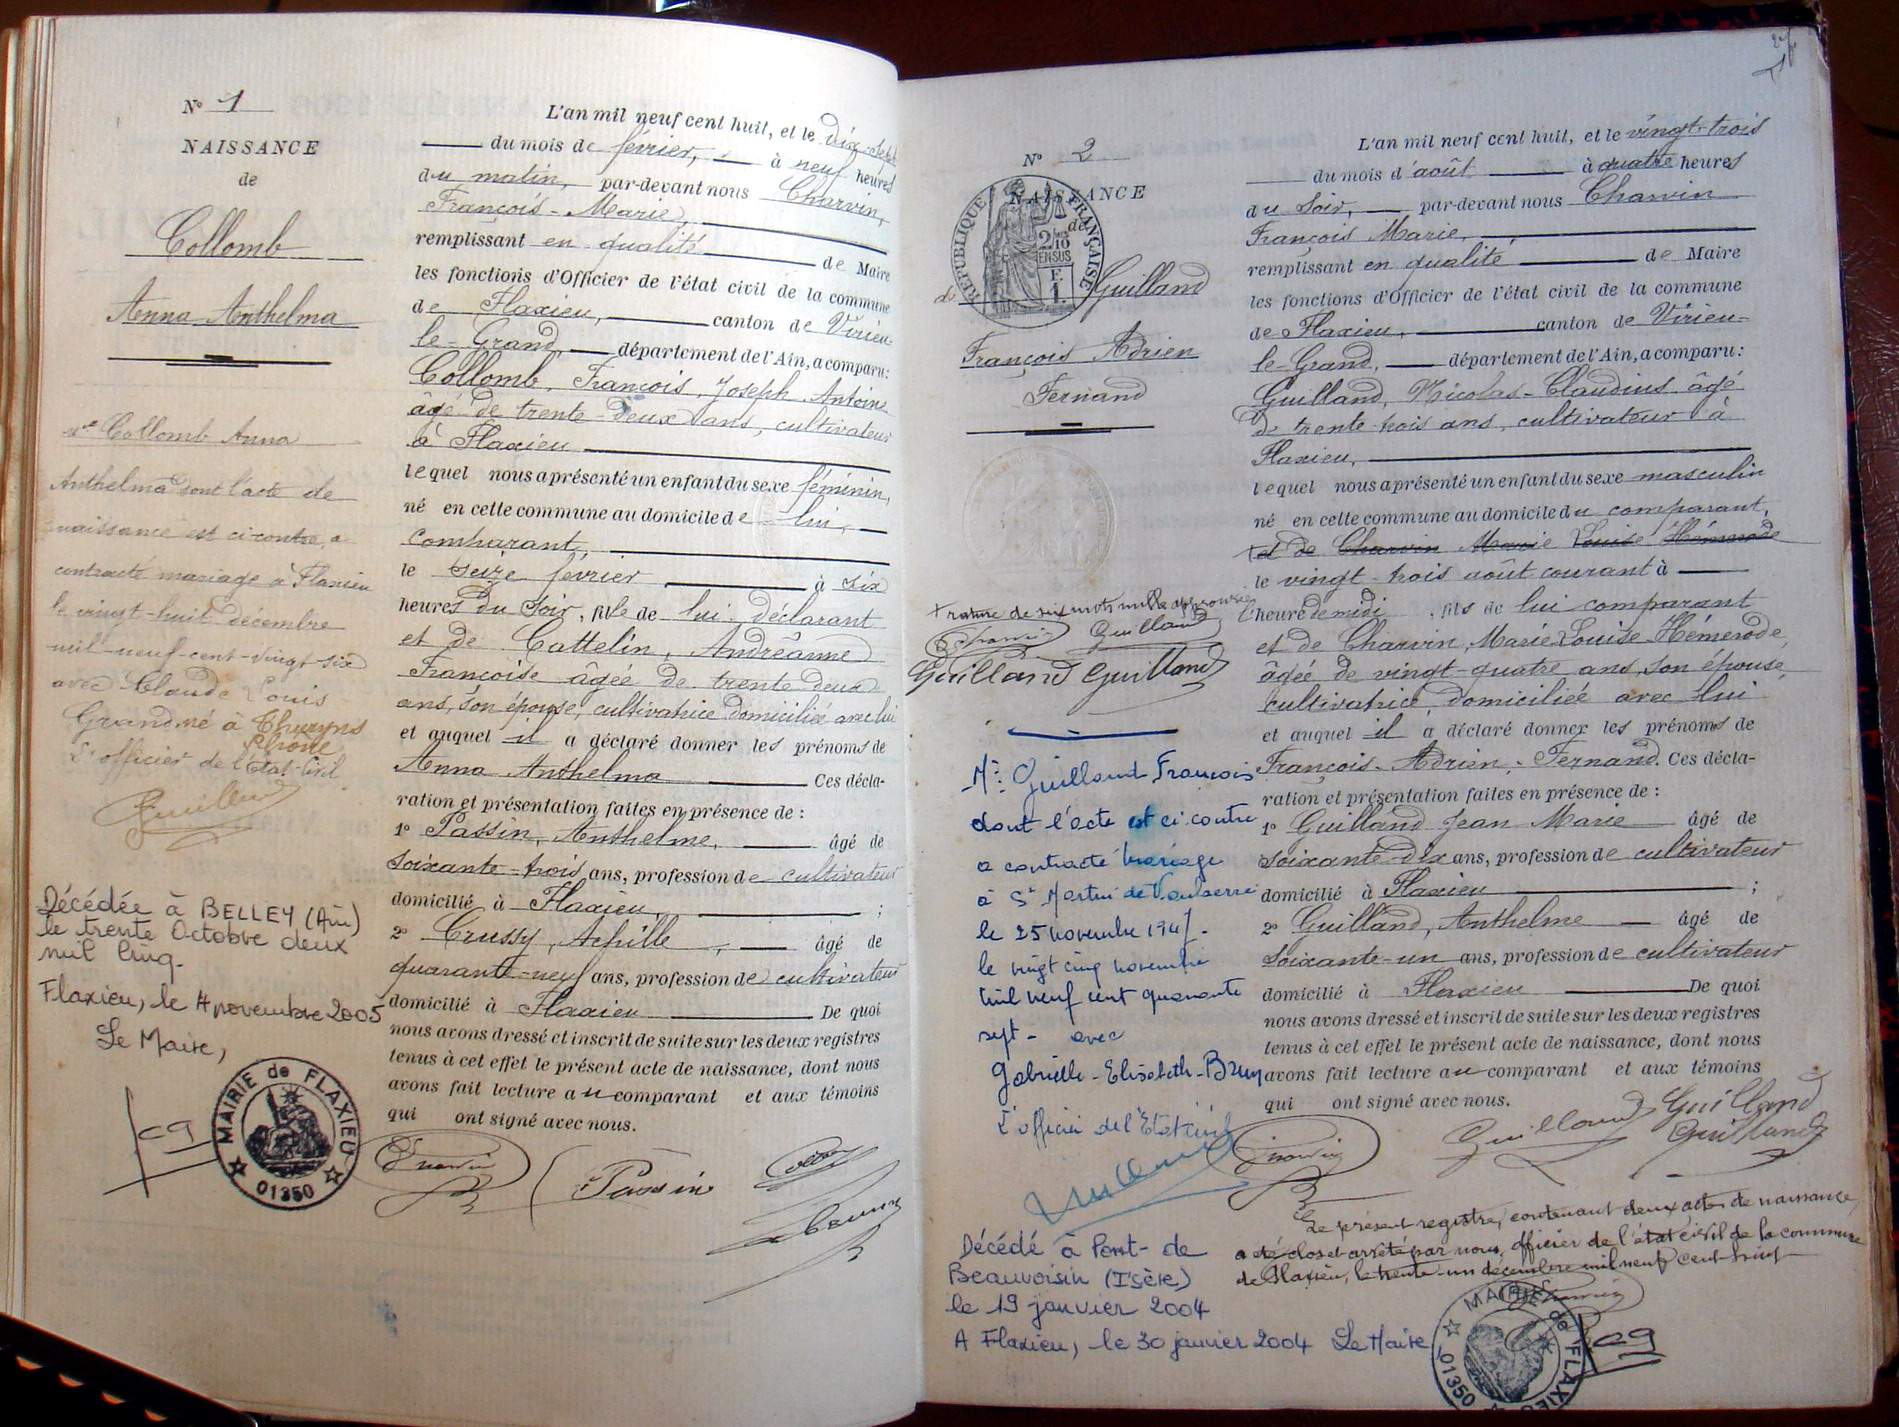 N° 1
NAISSANCE
de
Collomb
Anna Anthelma
Mlle Collomb Anna
Anthelma dont l'acte de
naissance est ci-contre, a
contracté mariage à Flaxieu
le vingt-huit décembre
mil-neuf-cent-vingt six
avec Claude Louis
Grand né à Thurins
Rhône
L'officier de l'Etat-Civil
Guilland
Décédée à BELLEY (Ain)
le trente Octobre deux
mil cinq.
Flaxieu, le 4 novembre 2005
Le Maire,
MAIRIE de FLAXIEU
01350
L'an mil neuf cent huit, et le dix-sept
du mois de février, à neuf heures
du matin, par-devant nous Charvin,
François-Marie,
remplissant en qualité de Maire
les fonctions d'Officier de l'état civil de la commune
de Flaxieu, canton de Virieu-
le-Grand, département de l'Ain, a comparu:
Collomb, François, Joseph, Antoine
âgé de trente-deux ans, cultivateur
à Flaxieu
lequel nous a présenté un enfant du sexe féminin,
né en cette commune au domicile de lui,
comparant,
le seize février à six
heures du soir, fille de lui déclarant
et de Cattelin, Andréanne
Françoise âgée de trente deux
ans, son épouse, cultivatrice domiciliée avec lui
et auquel il a déclaré donner les prénoms de
Anna Anthelma Ces décla-
ration et présentation faites en présence de :
1° Passin, Anthelme, âgé de
soixante-trois ans, profession de cultivateur
domicilié à Flaxieu, ;
2° Crussy, Achille, âgé de
quarante-neuf ans, profession de cultivateur
domicilié à Flaxieu De quoi
nous avons dressé et inscrit de suite sur les deux registres
tenus à cet effet le présent acte de naissance, dont nous
avons fait lecture au comparant et aux témoins
qui ont signé avec nous.
Charvin Passin
N° 2
NAISSANCE
de
RÉPUBLIQUE FRANÇAISE
2/10
EN SUS
F.
1.
de Guilland
François Adrien
Fernand
+ rature de six mots nulle approuvée
Charvin Guilland
Guilland Guilland
Mr. Guilland François
dont l'acte est ci-contre
a contracté mariage
à St Martin de Vaulserre
le 25 novembre 1947.
le vingt cinq novembre
mil neuf cent quarante
sept - avec
Gabrielle-Elisabeth-Bruy
L'officier de l'Etat civil
Décédé à Pont-de
Beauvoisin (Isère)
le 19 janvier 2004
A Flaxieu, le 30 janvier 2004 Le Maire,
L'an mil neuf cent huit, et le vingt-trois
du mois d'août à quatre heures
du soir, par-devant nous Charvin
François Marie,
remplissant en qualité de Maire
les fonctions d'Officier de l'état civil de la commune
de Flaxieu, canton de Virieu-
le-Grand, département de l'Ain, a comparu :
Guilland, Nicolas-Claudius âgé
de trente-trois ans, cultivateur à
Flaxieu,
lequel nous a présenté un enfant du sexe masculin
né en cette commune au domicile du comparant,
+ et de Charvin Marie Louise Hémerode
le vingt-trois août courant à
l'heure de midi, fils de lui comparant
et de Charvin, Marie Louise-Hémerode,
âgée de vingt-quatre ans, son épouse,
cultivatrice, domiciliée avec lui
et auquel il a déclaré donner les prénoms de
François-Adrien-Fernand. Ces décla-
ration et présentation faites en présence de :
1° Guilland Jean Marie âgé de
soixante-dix ans, profession de cultivateur
domicilié à Flaxieu ;
2° Guilland, Anthelme âgé de
soixante-un ans, profession de cultivateur
domicilié à Flaxieu De quoi
nous avons dressé et inscrit de suite sur les deux registres
tenus à cet effet le présent acte de naissance, dont nous
avons fait lecture au comparant et aux témoins
qui ont signé avec nous.
Charvin Guilland Guilland
Guilland
Le présent registre, contenant deux actes de naissance,
a été clos et arrêté par nous, officier de l'état civil de la commune
de Flaxieu, le trente-un décembre mil neuf cent huit
Charvin
MAIRIE de FLAXIEU
01350